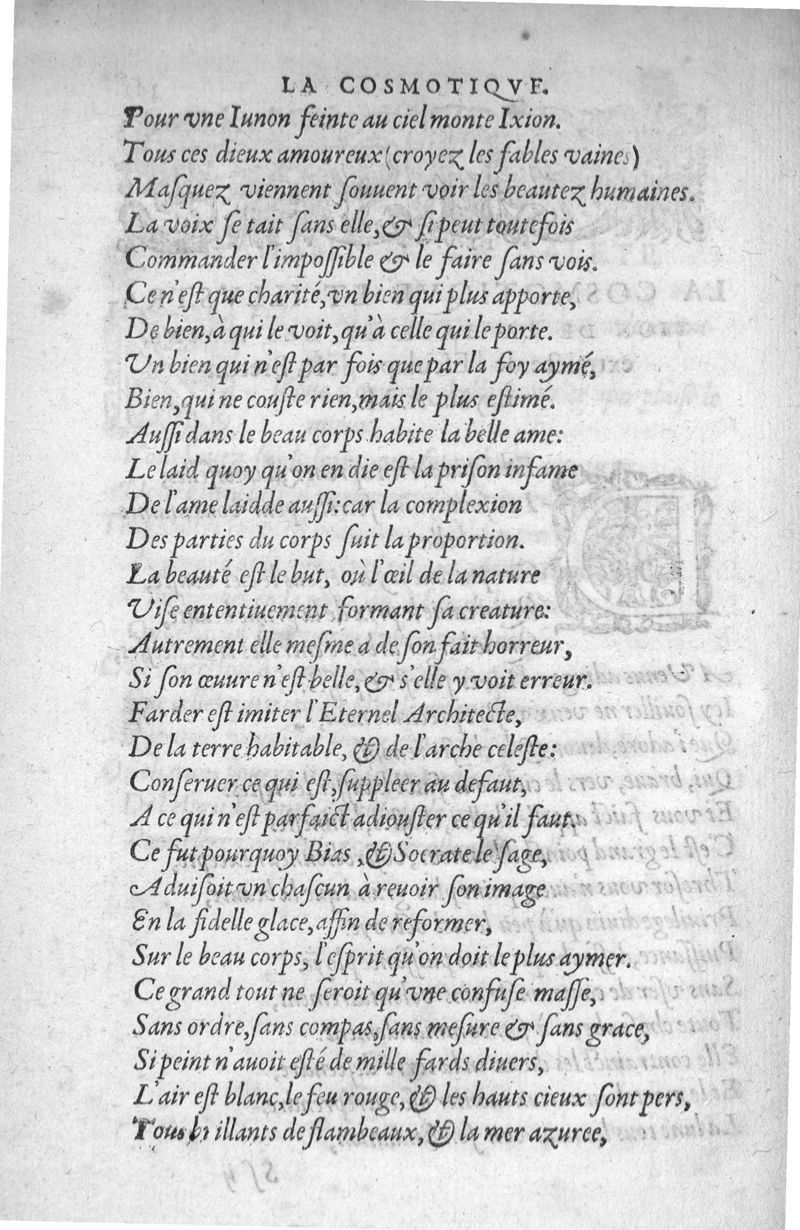 LA COSMOTIQVE.
Pour vne Iunon feinte au ciel monte Ixion.
Tous ces dieux amoureux (croyez les fables vaines)
Masquez viennent souuent voir les beautez humaines.
La voix se tait sans elle, & si peut toutefois
Commander l'impossible & le faire sans vois.
Ce n'est que charité, vn bien qui plus apporte,
De bien, à qui le voit, qu'à celle qui le porte.
Un bien qui n'est par fois que par la foy aymé,
Bien, qui ne couste rien, mais le plus estimé.
Aussi dans le beau corps habite la belle ame:
Le laid quoy qu'on en die est la prison infame
De l'ame laidde aussi: car la complexion
Des parties du corps suit la proportion.
La beauté est le but, où l'œil de la nature
Vise ententiuement formant sa creature:
Autrement elle mesme a de son fait horreur,
Si son œuure n'est belle, & s'elle y voit erreur.
Farder est imiter l'Eternel Architecte,
De la terre habitable, & de l'arche celeste:
Conseruer ce qui est, suppleer au defaut,
A ce qui n'est parfaict adiouster ce qu'il faut.
Ce fut pourquoy Bias, & Socrate le sage,
Aduisoit vn chascun à reuoir son image
En la fidelle glace, affin de reformer,
Sur le beau corps, l'esprit qu'on doit le plus aymer.
Ce grand tout ne seroit qu'vne confuse masse,
Sans ordre, sans compas, sans mesure & sans grace,
Si peint n'auoit esté de mille fards diuers,
L'air est blanc, le feu rouge, & les hauts cieux sont pers,
Tous brillants de flambeaux, & la mer azuree,